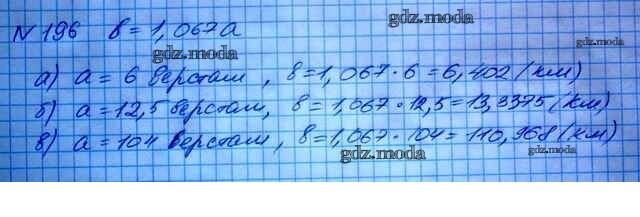 gdz.moda
№ 196 в = 1,067а
gdz.moda
а) а = 6 верстам, в = 1,067 · 6 = 6,402 (км)
б) а = 12,5 верстам, в = 1,067 · 12,5 = 13,3375 (км)
gdz.moda
в) а = 104 верстам, в = 1,067 · 104 = 110,968 (км)
gdz.moda
gdz.moda